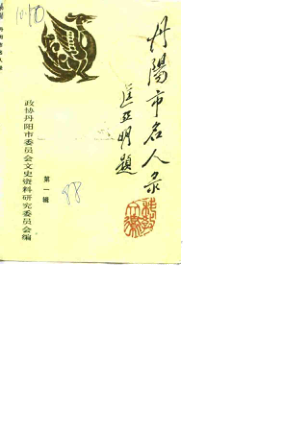 丹陽市名人录
匡亚明題
第一辑
政协丹阳市委员会文史资料研究委员会编